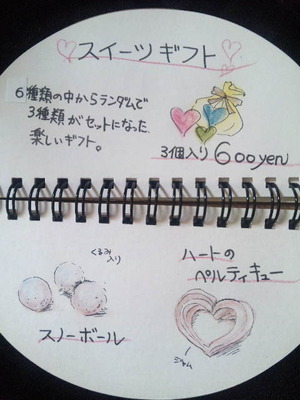 スイーツギフト
6種類の中からランダムで
3種類がセットになった
楽しいギフト。
3個入り 600yen
くるみ入り
スノーボール
ハートの
ペルティキュー
ジャム